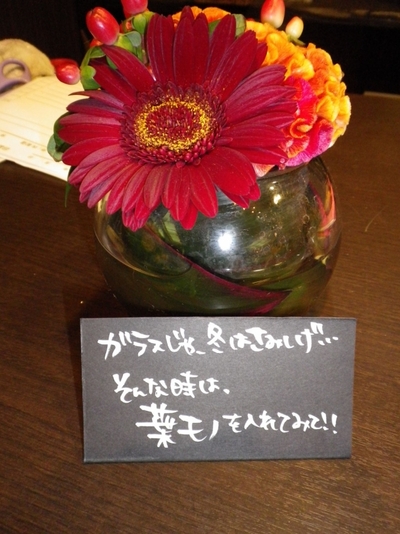 ガラスじゃ、冬はさみしげ…
そんな時は、
葉モノを入れてみて!!